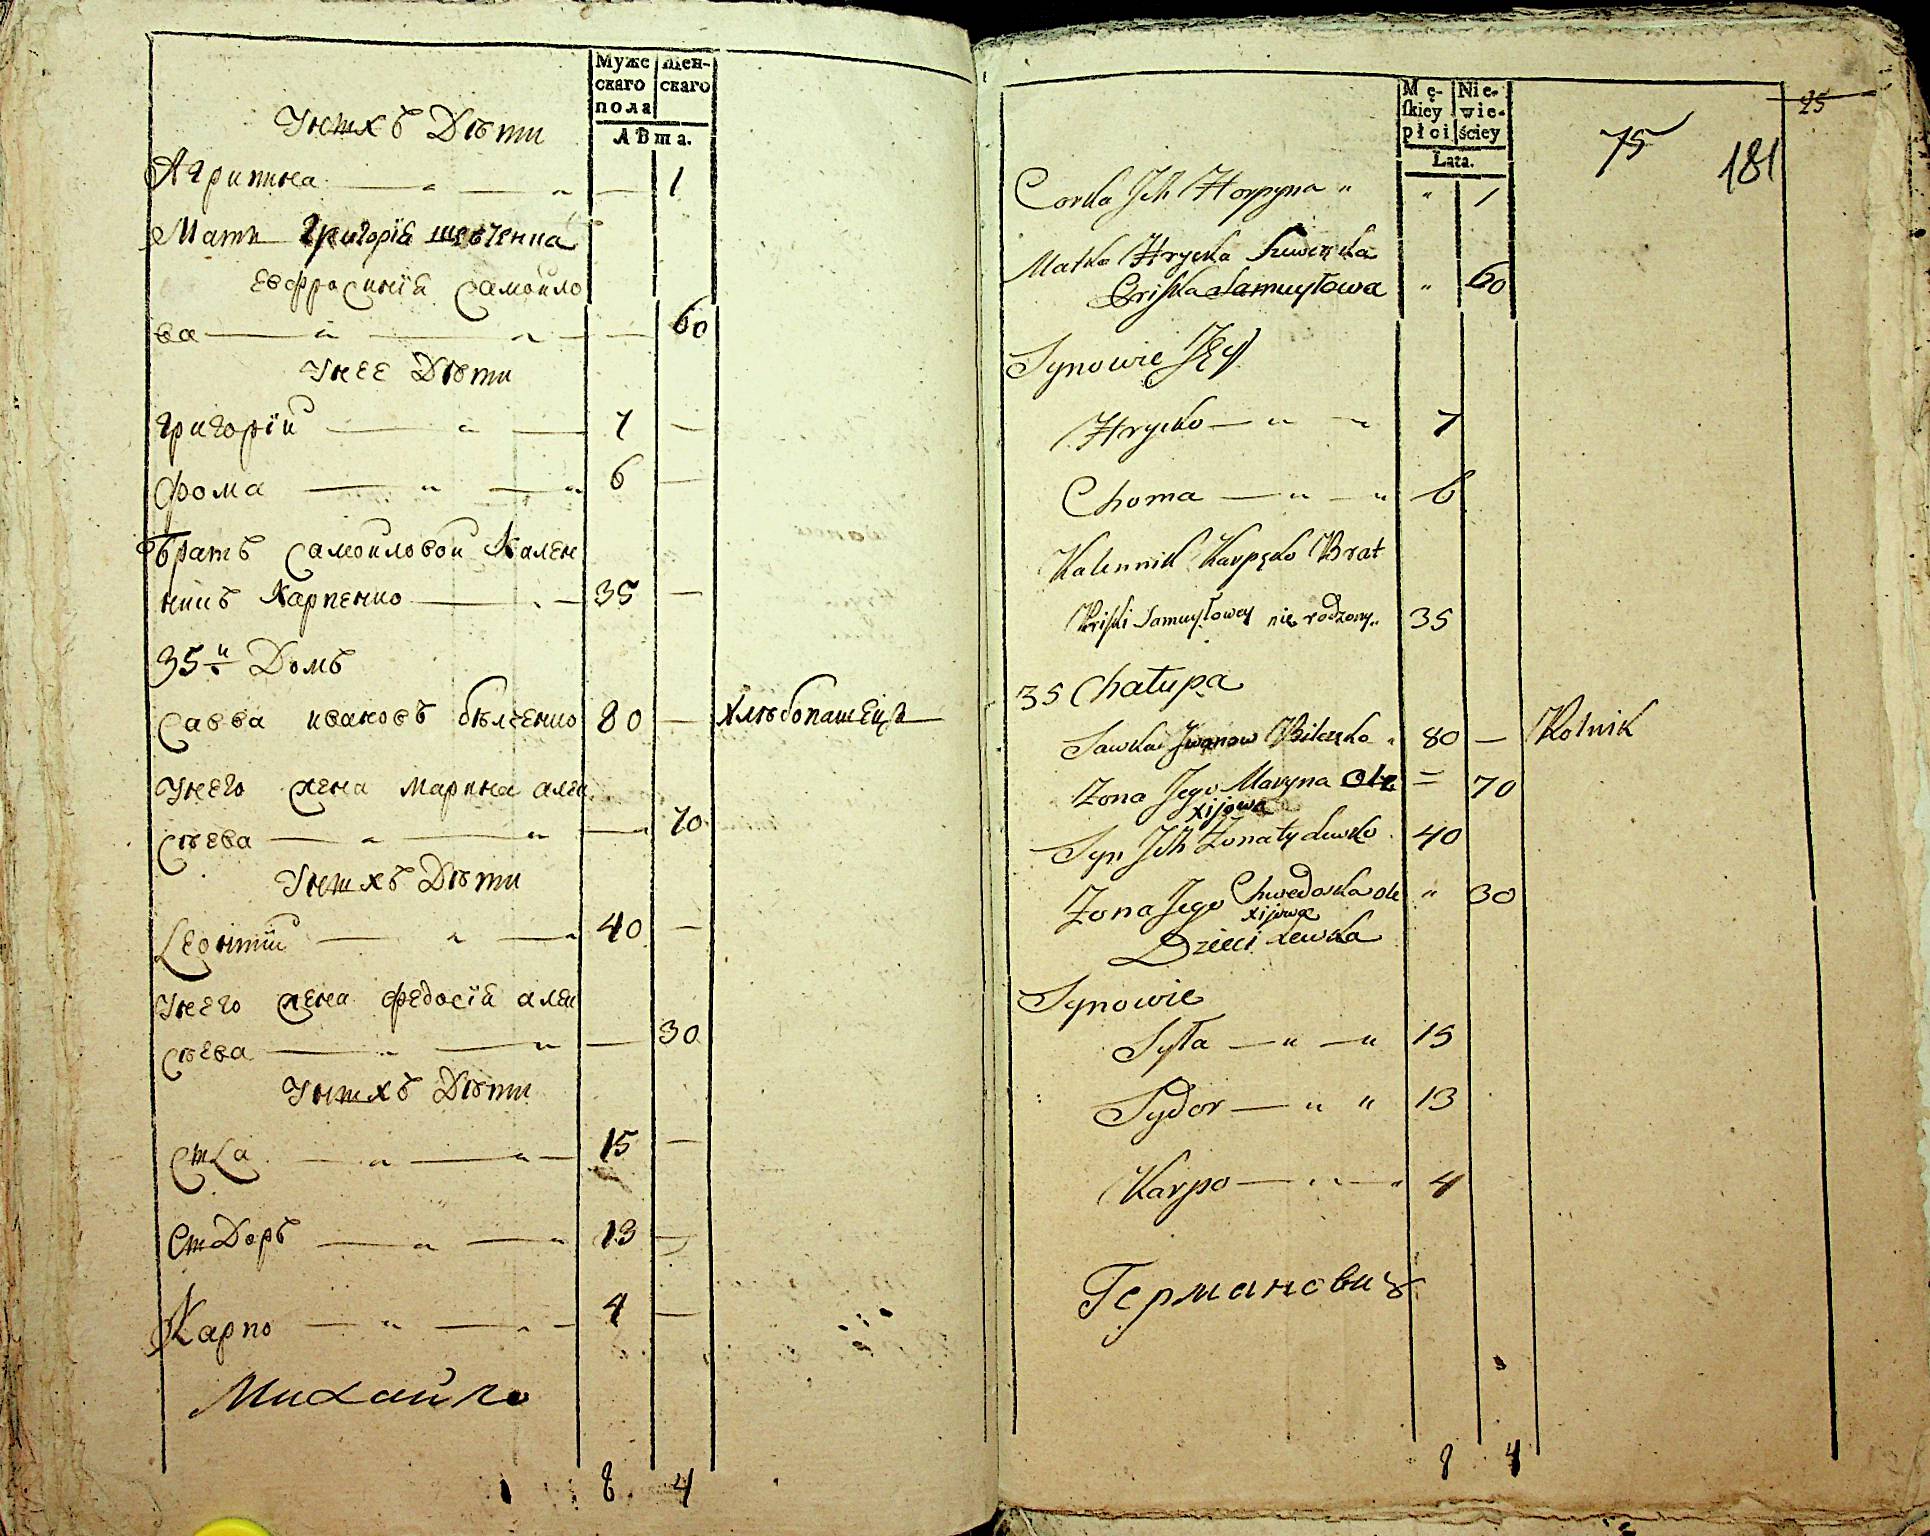 Муже скаго пола
Жен- скаго
Лѣта.
У нихъ Дѣти
Агрипина 1
Мать Григорія шевченка
Евфросинія Самойло
ва 60
У нее Дѣти
Григорій 7
Фома 6
Братъ Самойловой Кален
никъ Карпенко 35
35й Домъ
Савва Ивановъ бѣлченко 80 — Хлѣбопашецъ
У него жена Марина алек
сѣева 70
У нихъ Дѣти
Леонтій 40
У него жена Федосія алек
сѣева 30
У нихъ Дѣти
Сила 15
Сидоръ 13
Карпо 4
Михайло
8 4
Mę- skiey płci
Nie- wie- ściey
Lata.
25
75
181
Corka Jch Horpyna " " 1
Matka Hrycka Szewczęka
Priska Samuyłowa " 60
Synowie Jey
Hrycko 7
Choma 6
Kalennik Karpęko Brat
Priski Samuyłowey nie rodzony 35
35 Chałupa
Sawka Jwanow Bilczęko 80 — Rolnik
Zona Jego Maryna Ole = 70
xijowa
Syn Jch Żonaty Lewko 40
Zona Jego Chwedoska ole " 30
xijowa
Dzieci Lewka
Synowie
Syła 15
Sydor 13
Karpo 4
Германович
8 4